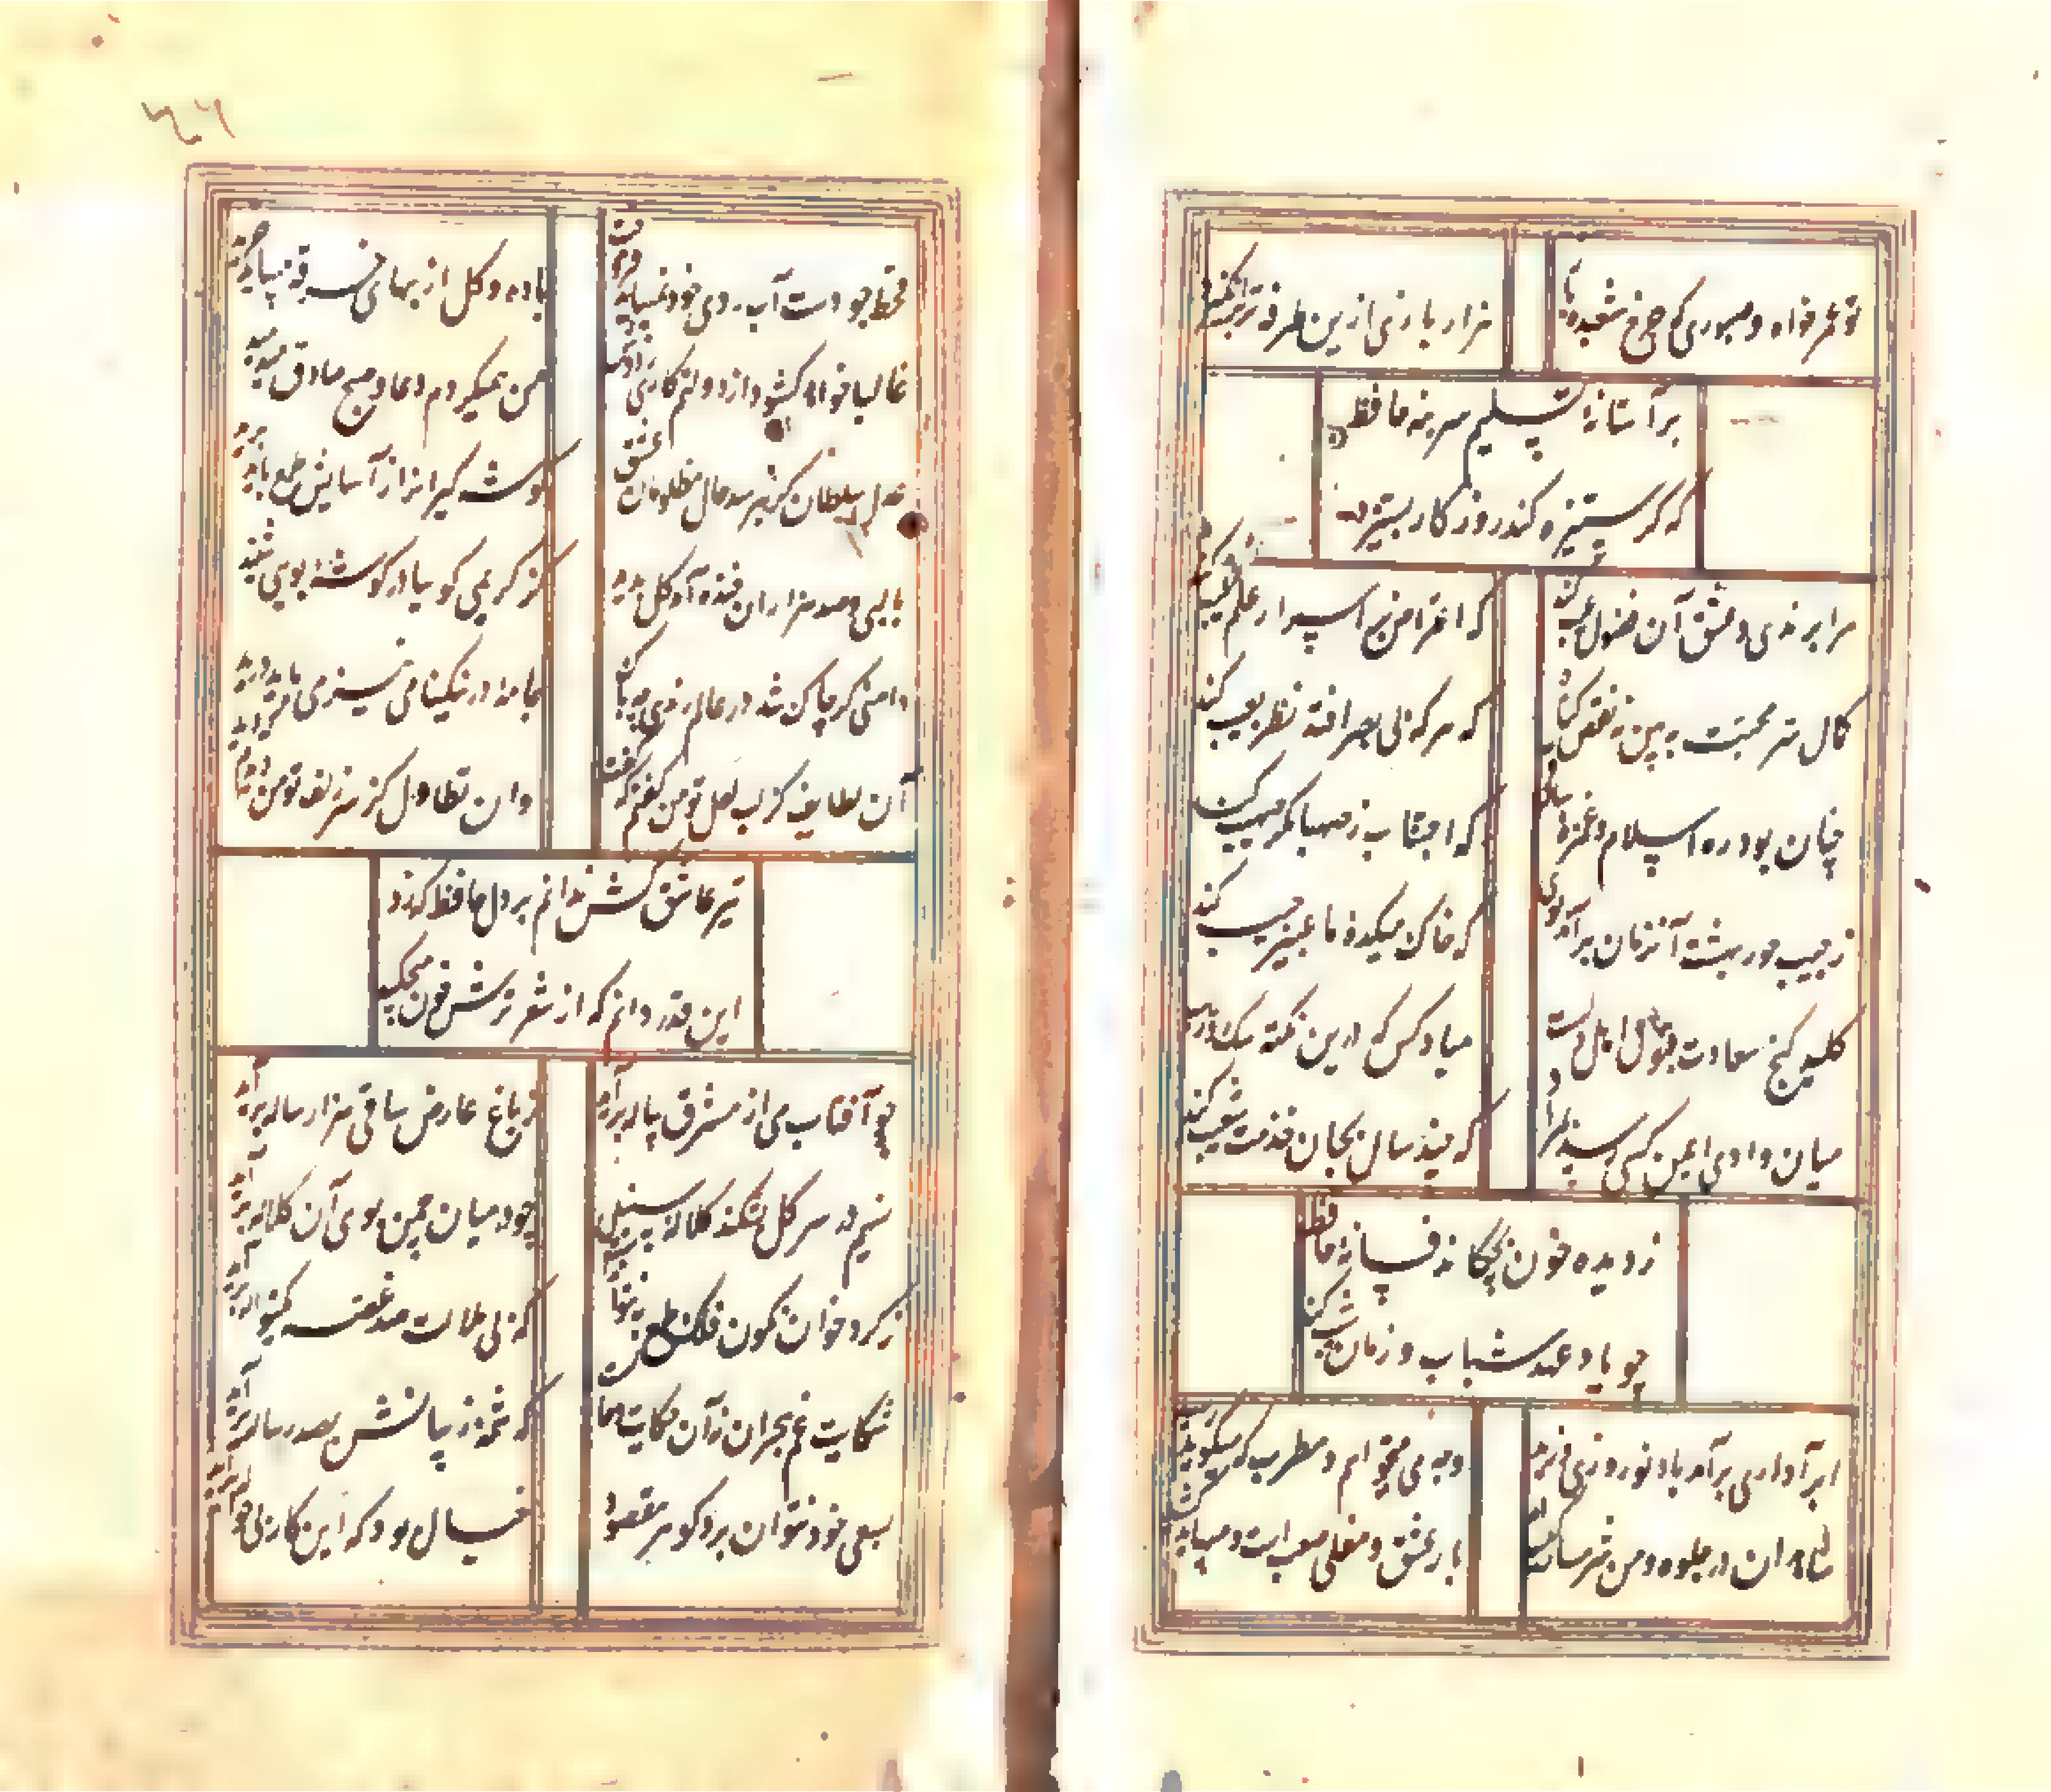 تو عمر خواه و صبوری که چرخ شعبده باز
هزار بازی ازین طرفه‌تر برانگیزد
بر آستانهٔ تسلیم سر بنه حافظ
که گر ستیزه کند روزگار بستیزد
مرا برندی و عشق آن فضول عیب کند
که اعتراض بر اسرار علم غیب کند
کمال سر محبت ببین نه نقص گناه
که هر که بی‌هنر افتد نظر بعیب کند
چنان بزد ره اسلام غمزهٔ ساقی
که اجتناب ز صهبا مگر صهیب کند
ز جیب حور بهشت آنزمان برآید بوی
که خاک میکدهٔ ما عبیر جیب کند
کلید گنج سعادت قبول اهل دلست
مباد کس که درین نکته شک و ریب کند
میان وادی ایمن کسی رسد بمراد
که چند سال بجان خدمت شعیب کند
ز دیده خون بچکاند فسانهٔ حافظ
چو یاد عهد شباب و زمان شیب کند
ابر آذاری برآمد باد نوروزی وزید
وجه می میخواهم و مطرب که میگوید رسید
شاهدان در جلوه و من شرمسار کیسه‌ام
بار عشق و مفلسی صعب است و میباید کشید
۴۶
قحط جودست آبروی خود نمیباید فروخت
باده و گل از بهای خرقه میباید خرید
غالبا خواهد گشود از دولتم کاری که دوش
من همیکردم دعا و صبح صادق میدمید
عدل سلطان گر نپرسد حال مظلومان عشق
گوشه گیرانرا ز آسایش طمع باید برید
با لبی و صد هزاران خنده آمد گل بباغ
از کریمی گوییا در گوشهٔ بویی شنید
دامنی گر چاک شد در عالم رندی چه باک
جامهٔ در نیکنامی نیز می‌باید درید
آن لطایف کز لب لعل تو من گفتم که گفت
وان تطاول کز سر زلف تو من دیدم که دید
تیر عاشق کش ندانم بر دل حافظ که زد
این قدر دانم که از شعر ترش خون میچکید
چو آفتاب می از مشرق پیاله برآید
ز باغ عارض ساقی هزار لاله برآید
نسیم در سر گل بشکند کلالهٔ سنبل
چو در میان چمن بوی آن کلاله برآید
ز گرد خوان نگون فلک طمع نتوان داشت
که بی ملالت صد غصه یک نواله برآید
شکایت غم هجران نه آن حکایت حالست
که شمهٔ ز بیانش بصد رساله برآید
بسعی خود نتوان برد گوهر مقصود
خیال بود که این کار بی حواله برآید